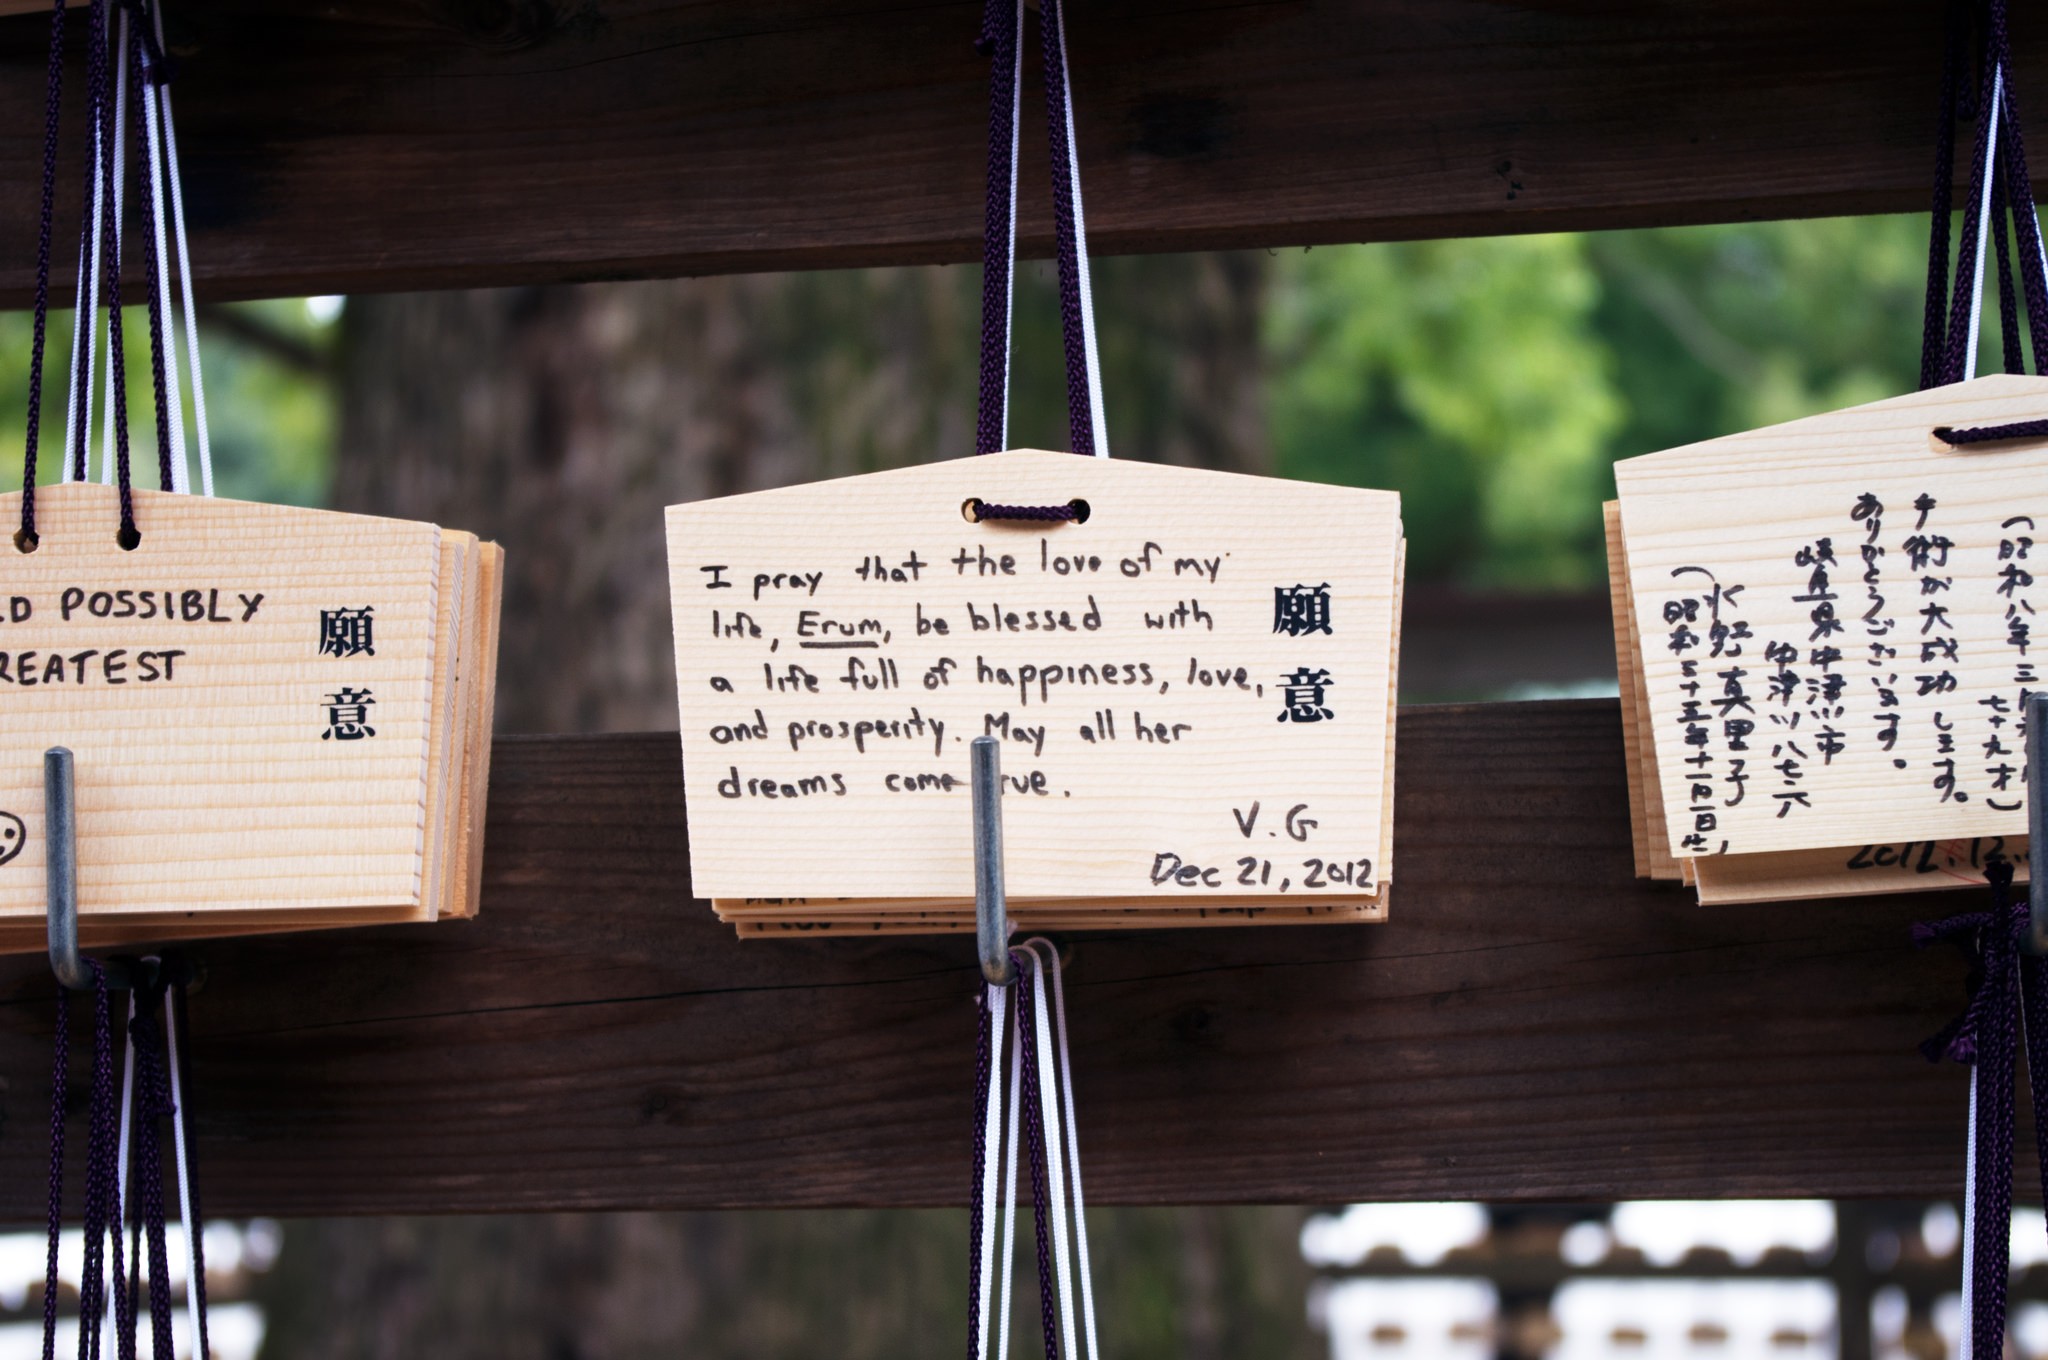 LD POSSIBLY
REATEST
願意
I pray that the love of my
life, Erum, be blessed with
a life full of happiness, love,
and prosperity. May all her
dreams come rue.
V.G
Dec 21, 2012
願意
(昭和八年三月
七十九才)
手術が大成功します。
ありがとうございます。
岐阜県中津川市
中津川八七六
水野真里子
(昭和五十五年十一月一日生
2012.12.